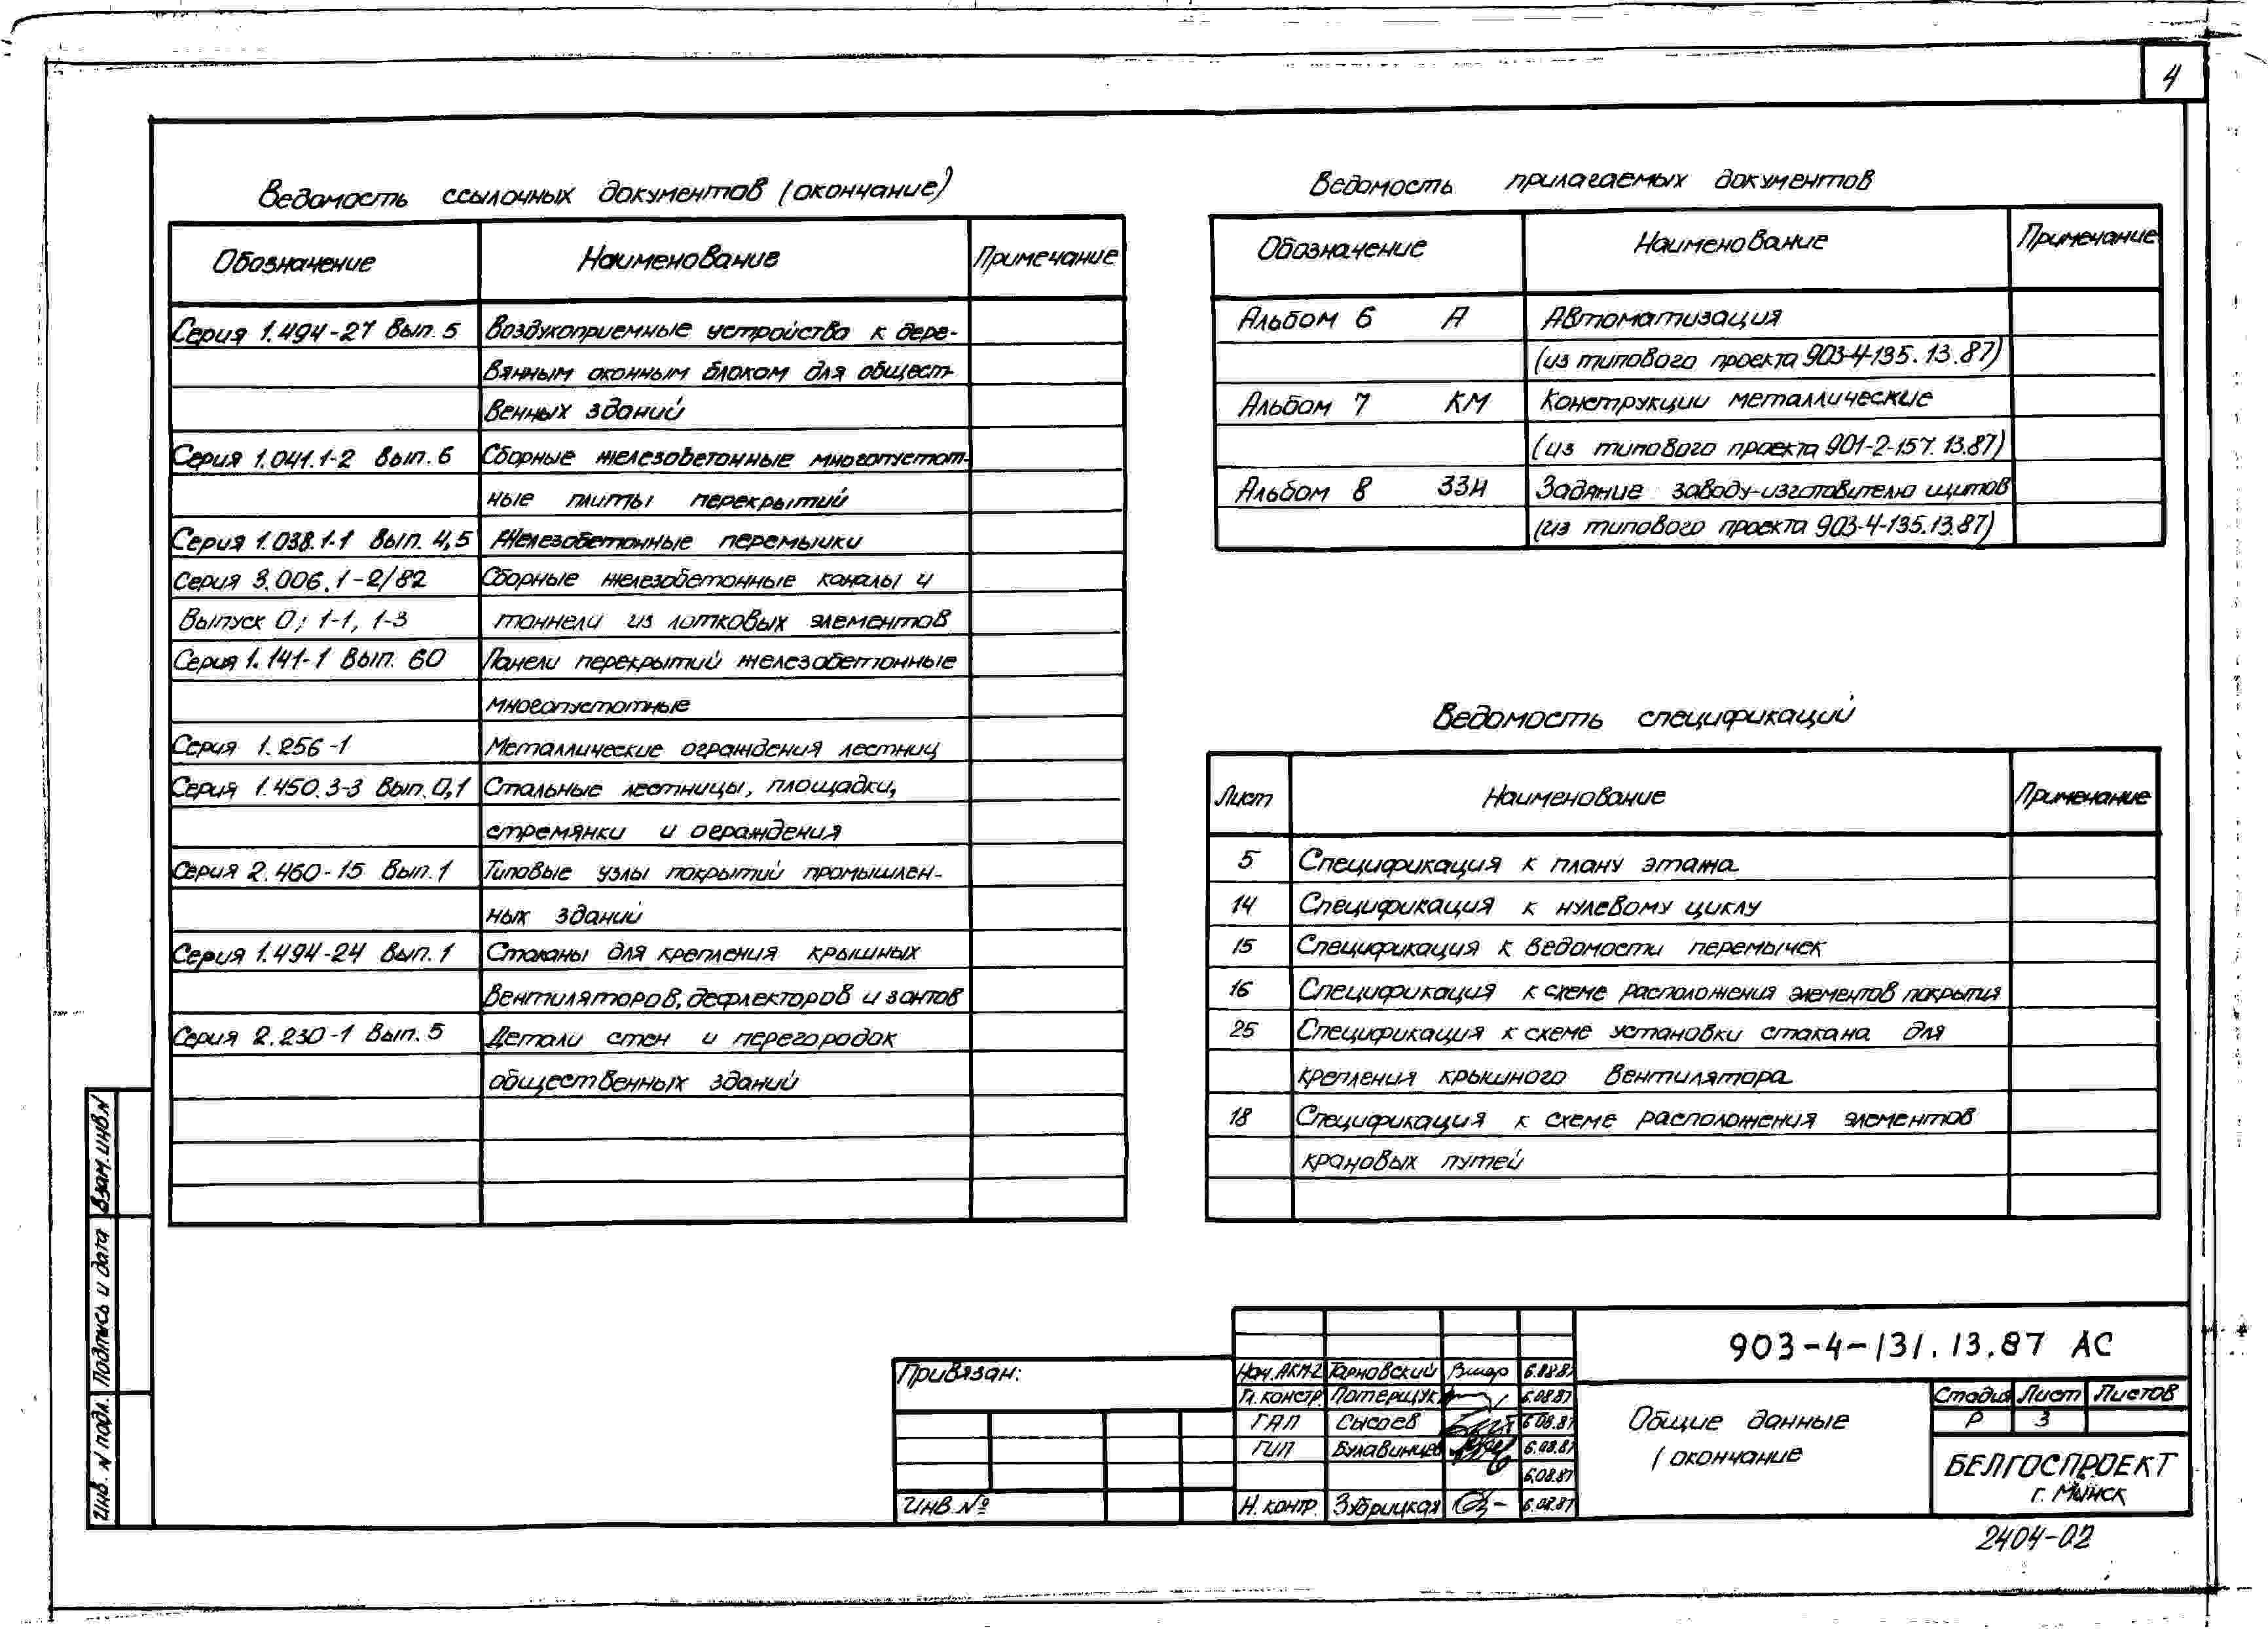 4
Ведомость ссылочных документов (окончание)
Обозначение Наименование Примечание
Серия 1.494-27 Вып. 5 Воздухоприемные устройства к дере-
вянным оконным блокам для общест-
венных зданий
Серия 1.041.1-2 Вып. 6 Сборные железобетонные многопустот-
ные плиты перекрытий
Серия 1.038.1-1 Вып. 4,5 Железобетонные перемычки
Серия 3.006.1-2/82 Сборные железобетонные каналы и
Выпуск 0; 1-1, 1-3 тоннели из лотковых элементов
Серия 1.141-1 Вып. 60 Панели перекрытий железобетонные
многопустотные
Серия 1.256-1 Металлические ограждения лестниц
Серия 1.450.3-3 Вып. 0,1 Стальные лестницы, площадки,
стремянки и ограждения
Серия 2.460-15 Вып. 1 Типовые узлы покрытий промышлен-
ных зданий
Серия 1.494-24 Вып. 1 Стаканы для крепления крышных
вентиляторов, дефлекторов и зонтов
Серия 2.230-1 Вып. 5 Детали стен и перегородок
общественных зданий
Ведомость прилагаемых документов
Обозначение Наименование Примечание
Альбом 6 А Автоматизация
(из типового проекта 903-4-135.13.87)
Альбом 7 КМ Конструкции металлические
(из типового проекта 901-2-157.13.87)
Альбом 8 ЗЗИ Задание заводу-изготовителю щитов
(из типового проекта 903-4-135.13.87)
Ведомость спецификаций
Лист Наименование Примечание
5 Спецификация к плану этажа
14 Спецификация к нулевому циклу
15 Спецификация к ведомости перемычек
16 Спецификация к схеме расположения элементов покрытия
25 Спецификация к схеме установки стакана для
крепления крышного вентилятора
18 Спецификация к схеме расположения элементов
крановых путей
Взам. инв. N
Подпись и дата
Инв. N подл.
Привязан:
Инв. №
Нач. АКМ-2 Тарновский 6.08.87
Гл. констр. Потерщук 6.08.87
ГАП Сысоев 6.08.87
ГИП Булавинцев 6.08.87
6.08.87
Н. контр. Зубрицкая 6.08.87
903-4-131.13.87 АС
Общие данные
(окончание
Стадия Лист Листов
Р 3
БЕЛГОСПРОЕКТ
г. Минск
2404-02